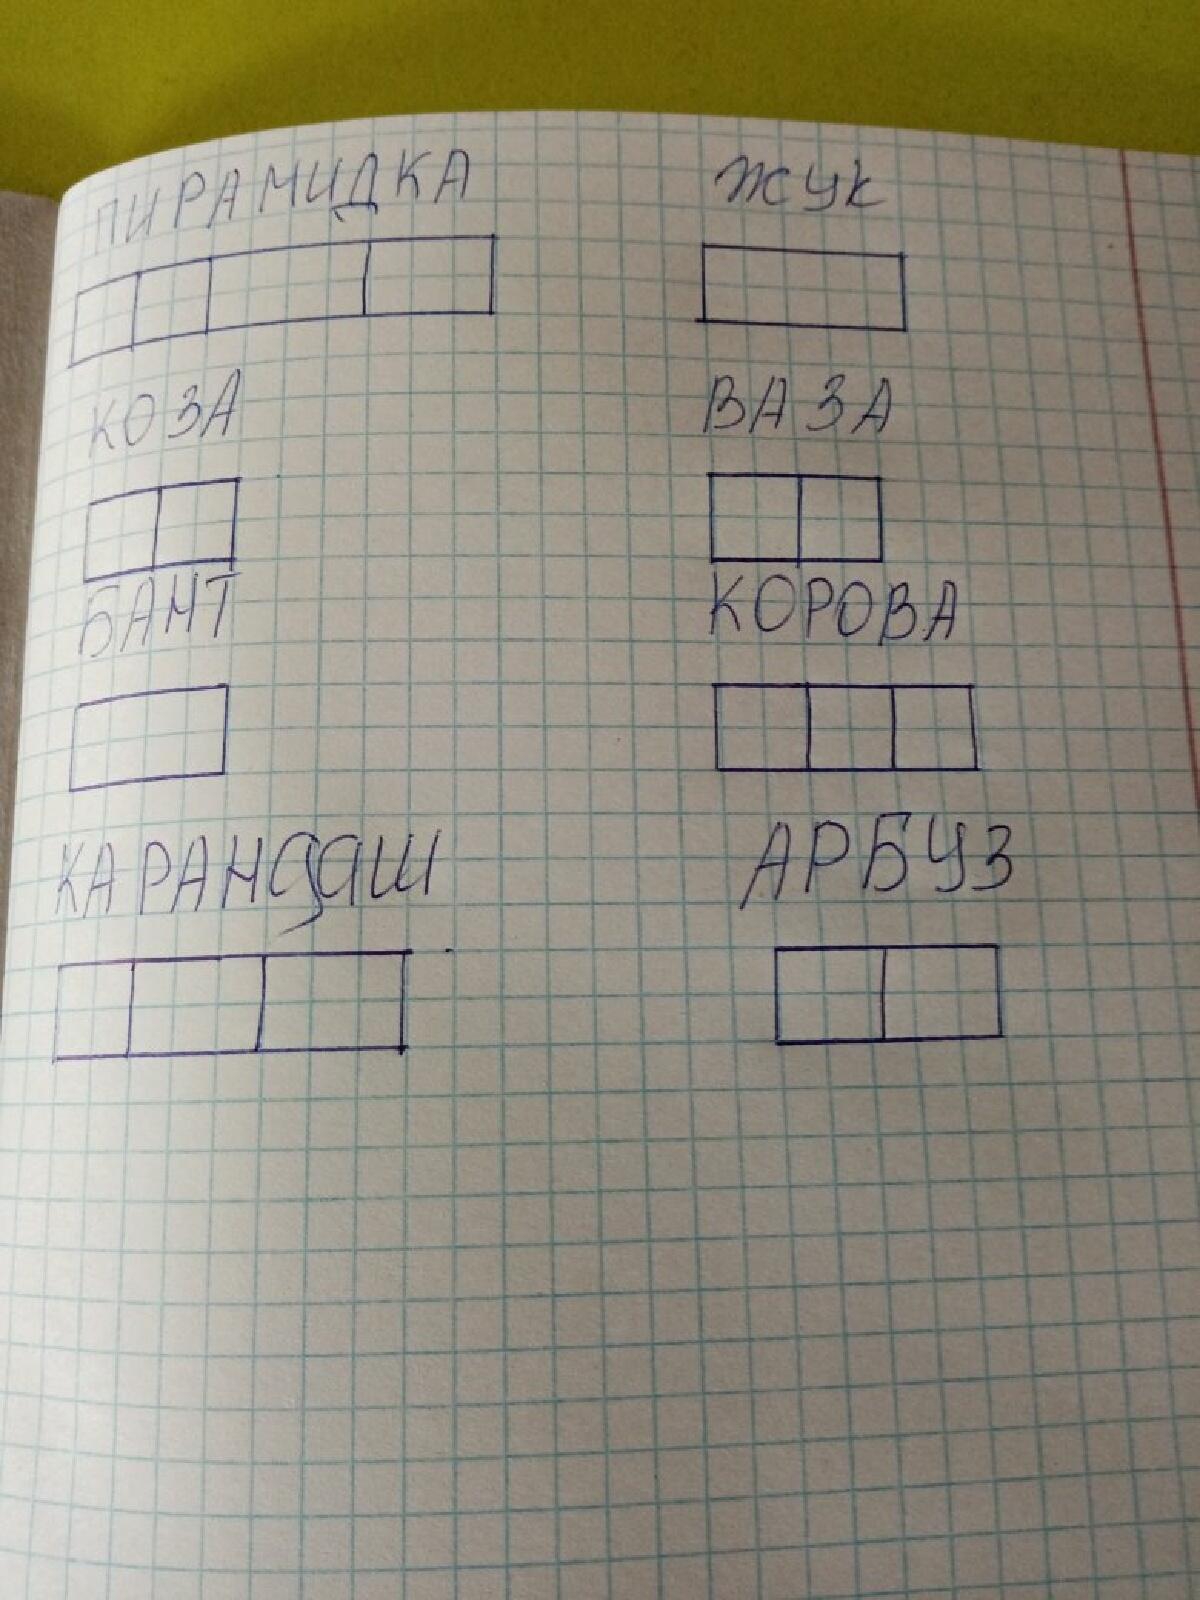 ПИРАМИДКА ЖУК
КОЗА ВАЗА
БАНТ КОРОВА
КАРАНДАШ АРБУЗ